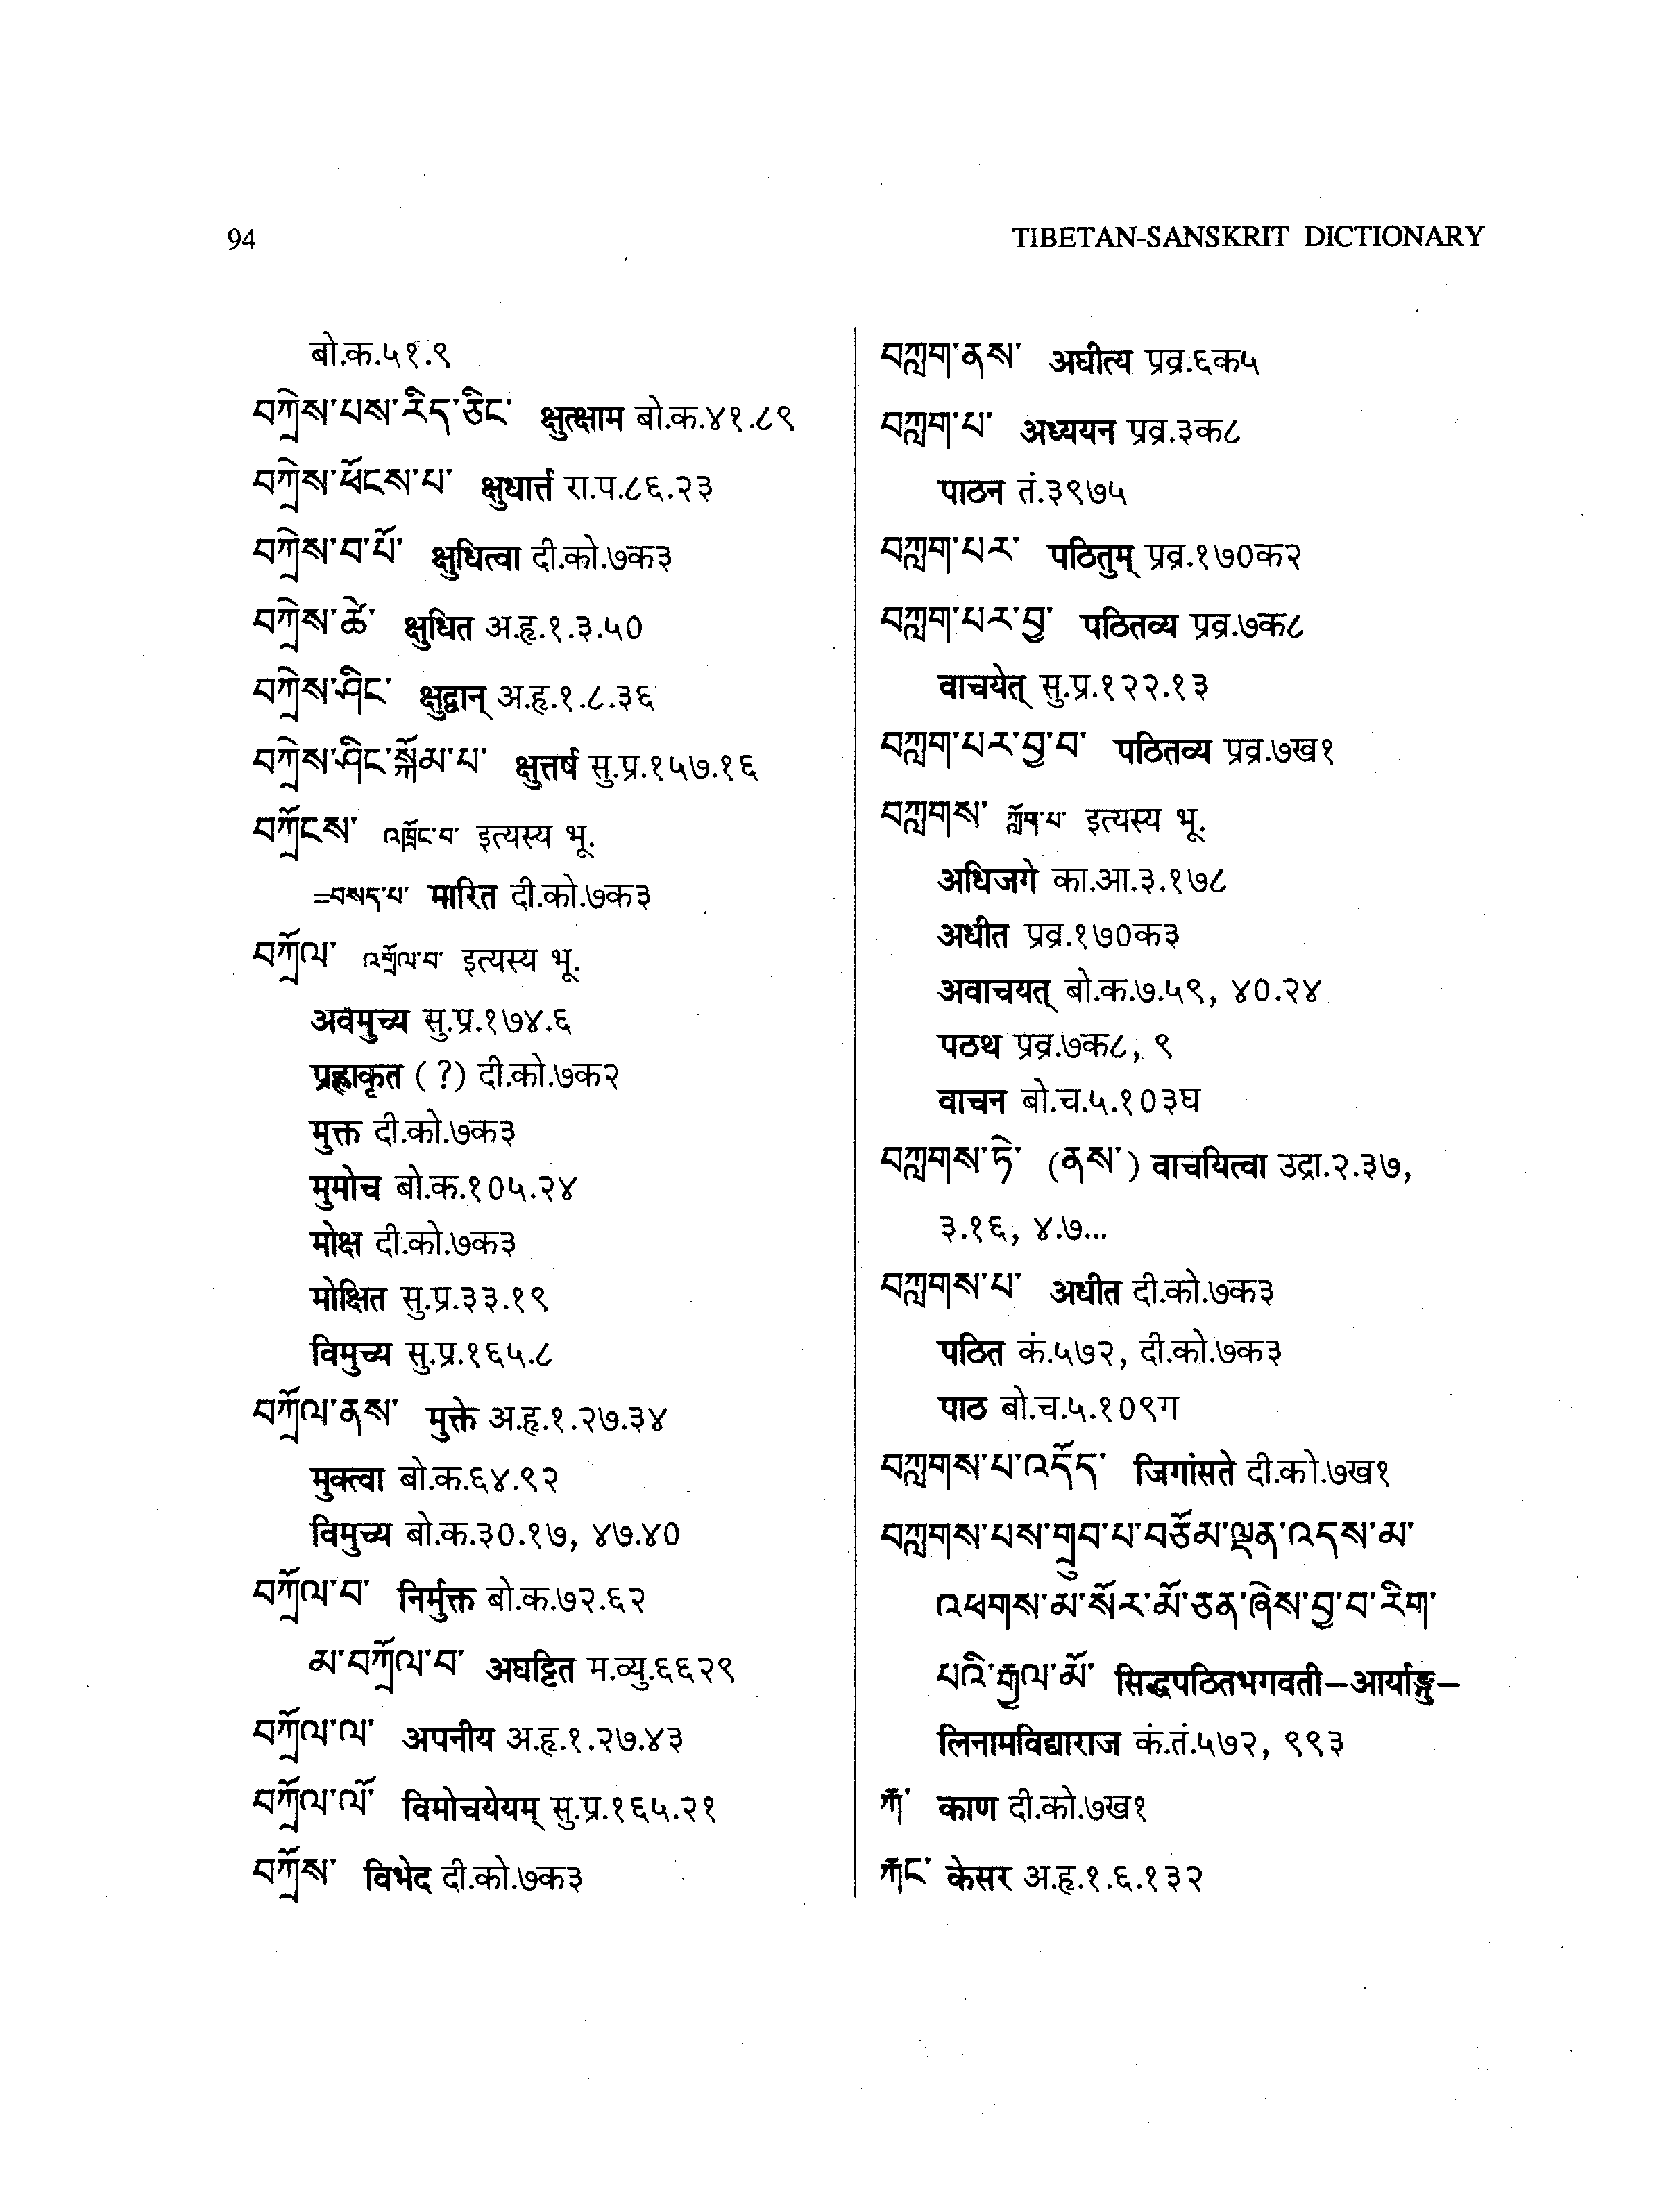 94
TIBETAN-SANSKRIT DICTIONARY
बो.क.५१.९
བཀྲེས་པས་རིད་ཅིང་ क्षुत्क्षाम बो.क.४१.८९
བཀྲེས་ཕོངས་པ་ क्षुधार्त्त रा.प.८६.२३
བཀྲེས་བ་པོ་ क्षुधित्वा दी.को.७क३
བཀྲེས་ཚེ་ क्षुधित अ.हृ.१.३.५०
བཀྲེས་ཤིང་ क्षुद्वान् अ.हृ.१.८.३६
བཀྲེས་ཤིང་སྐོམ་པ་ क्षुत्तर्ष सु.प्र.१५७.१६
བཀྲོངས་ འཁྲོང་བ་ इत्यस्य भू.
=བསད་པ་ मारित दी.को.७क३
བཀྲོལ་ འགྲོལ་བ་ इत्यस्य भू.
अवमुच्य सु.प्र.१७४.६
प्रह्लाकृत (?) दी.को.७क२
मुक्त दी.को.७क३
मुमोच बो.क.१०५.२४
मोक्ष दी.को.७क३
मोक्षित सु.प्र.३३.१९
विमुच्य सु.प्र.१६५.८
བཀྲོལ་ནས་ मुक्ते अ.हृ.१.२७.३४
मुक्त्वा बो.क.६४.९२
विमुच्य बो.क.३०.१७, ४७.४०
བཀྲོལ་བ་ निर्मुक्त बो.क.७२.६२
མ་བཀྲོལ་བ་ अघट्टित म.व्यु.६६२९
བཀྲོལ་ལ་ अपनीय अ.हृ.१.२७.४३
བཀྲོལ་ལོ་ विमोचयेयम् सु.प्र.१६५.२१
བཀྲོས་ विभेद दी.को.७क३
བཀླག་ནས་ अधीत्य प्रव्र.६क५
བཀླག་པ་ अध्ययन प्रव्र.३क८
पाठन तं.३९७५
བཀླག་པར་ पठितुम् प्रव्र.१७०क२
བཀླག་པར་བྱ་ पठितव्य प्रव्र.७क८
वाचयेत् सु.प्र.१२२.१३
བཀླག་པར་བྱ་བ་ पठितव्य प्रव्र.७ख१
བཀླགས་ ཀློག་པ་ इत्यस्य भू.
अधिजगे का.आ.३.१७८
अधीत प्रव्र.१७०क३
अवाचयत् बो.क.७.५९, ४०.२४
पठथ प्रव्र.७क८, ९
वाचन बो.च.५.१०३घ
བཀླགས་ཏེ་ (ནས་) वाचयित्वा उद्रा.२.३७,
३.१६, ४.७...
བཀླགས་པ་ अधीत दी.को.७क३
पठित कं.५७२, दी.को.७क३
पाठ बो.च.५.१०९ग
བཀླགས་པ་འདོད་ जिगांसते दी.को.७ख१
བཀླགས་པས་གྲུབ་པ་བཅོམ་ལྡན་འདས་མ་
འཕགས་མ་སོར་མོ་ཅན་ཞེས་བྱ་བ་རིག་
པའི་རྒྱལ་མོ་ सिद्धपठितभगवती–आर्याङ्गु–
लिनामविद्याराज कं.तं.५७२, ९९३
རྐ་ काण दी.को.७ख१
རྐང་ केसर अ.हृ.१.६.१३२